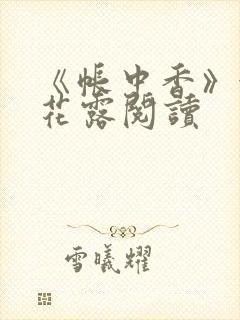 《帐中香》
花露閱讀
雪曦耀